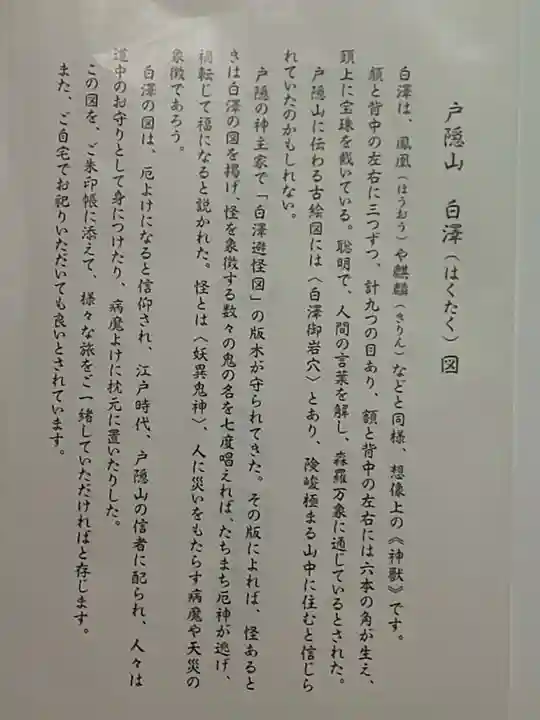 戸隠山　白澤（はくたく）図
白澤は、鳳凰（ほうおう）や麒麟（きりん）などと同様、想像上の《神獣》です。
額と背中の左右に三つずつ、計九つの目あり、額と背中の左右には六本の角が生え、
頭上に宝珠を戴いている。聡明で、人間の言葉を解し、森羅万象に通じているとされた。
戸隠山に伝わる古絵図には〈白澤御岩穴〉とあり、険峻極まる山中に住むと信じら
れていたのかもしれない。
戸隠の神主家で「白澤避怪図」の版木が守られてきた。その版によれば、怪あると
きは白澤の図を掲げ、怪を象徴する数々の鬼の名を七度唱えれば、たちまち厄神が逃げ、
禍転じて福になると説かれた。怪とは〈妖異鬼神〉、人に災いをもたらす病魔や天災の
象徴であろう。
白澤の図は、厄よけになると信仰され、江戸時代、戸隠山の信者に配られ、人々は
道中のお守りとして身につけたり、病魔よけに枕元に置いたりした。
この図を、ご朱印帳に添えて、様々な旅をご一緒していただければと存じます。
また、ご自宅でお祀りいただいても良いとされています。